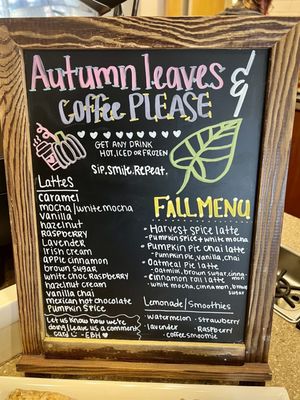 Autumn leaves &
coffee PLEASE
GET ANY DRINK
HOT, ICED OR FROZEN
SIP. SMILE. REPEAT.
Lattes
caramel
mocha/white mocha
vanilla
hazelnut
Raspberry
Lavender
Irish cream
apple cinnamon
brown sugar
white choc raspberry
hazelnut cream
vanilla chai
mexican hot chocolate
Pumpkin Spice
Let us know how we're
doing! Leave us a comment
card ☺ -EBH ♥
FALL MENU
• Harvest spice latte
• Pumpkin spice + white mocha
• Pumpkin Pie chai latte
• Pumpkin Pie, vanilla, chai
• Oatmeal Pie latte
• oatmilk, brown sugar, cinna-
mon
• Cinnamon roll latte
• white mocha, cinnamon, brown
sugar
Lemonade/Smoothies
• watermelon • strawberry
• lavender • Raspberry
• coffee smoothie